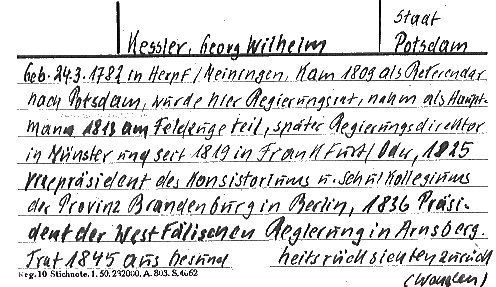 Staat
Kessler, Georg Wilhelm Potsdam
Geb. 24.3.1782 in Herpf/Meiningen. Kam 1809 als Referendar
nach Potsdam, wurde hier Regierungsrat, nahm als Haupt-
mann 1813 am Feldzuge teil, später Regierungsdirektor
in Münster und seit 1819 in Frankfurt/Oder, 1825
Vizepräsident des Konsistoriums u. Schulkollegiums
der Provinz Brandenburg in Berlin, 1836 Präsi-
dent der Westfälischen Regierung in Arnsberg.
Trat 1845 aus Gesund heitsrücksichten zurück
Reg. 10 Stichnote. I. 50. 232000. A. 803. S. 4662